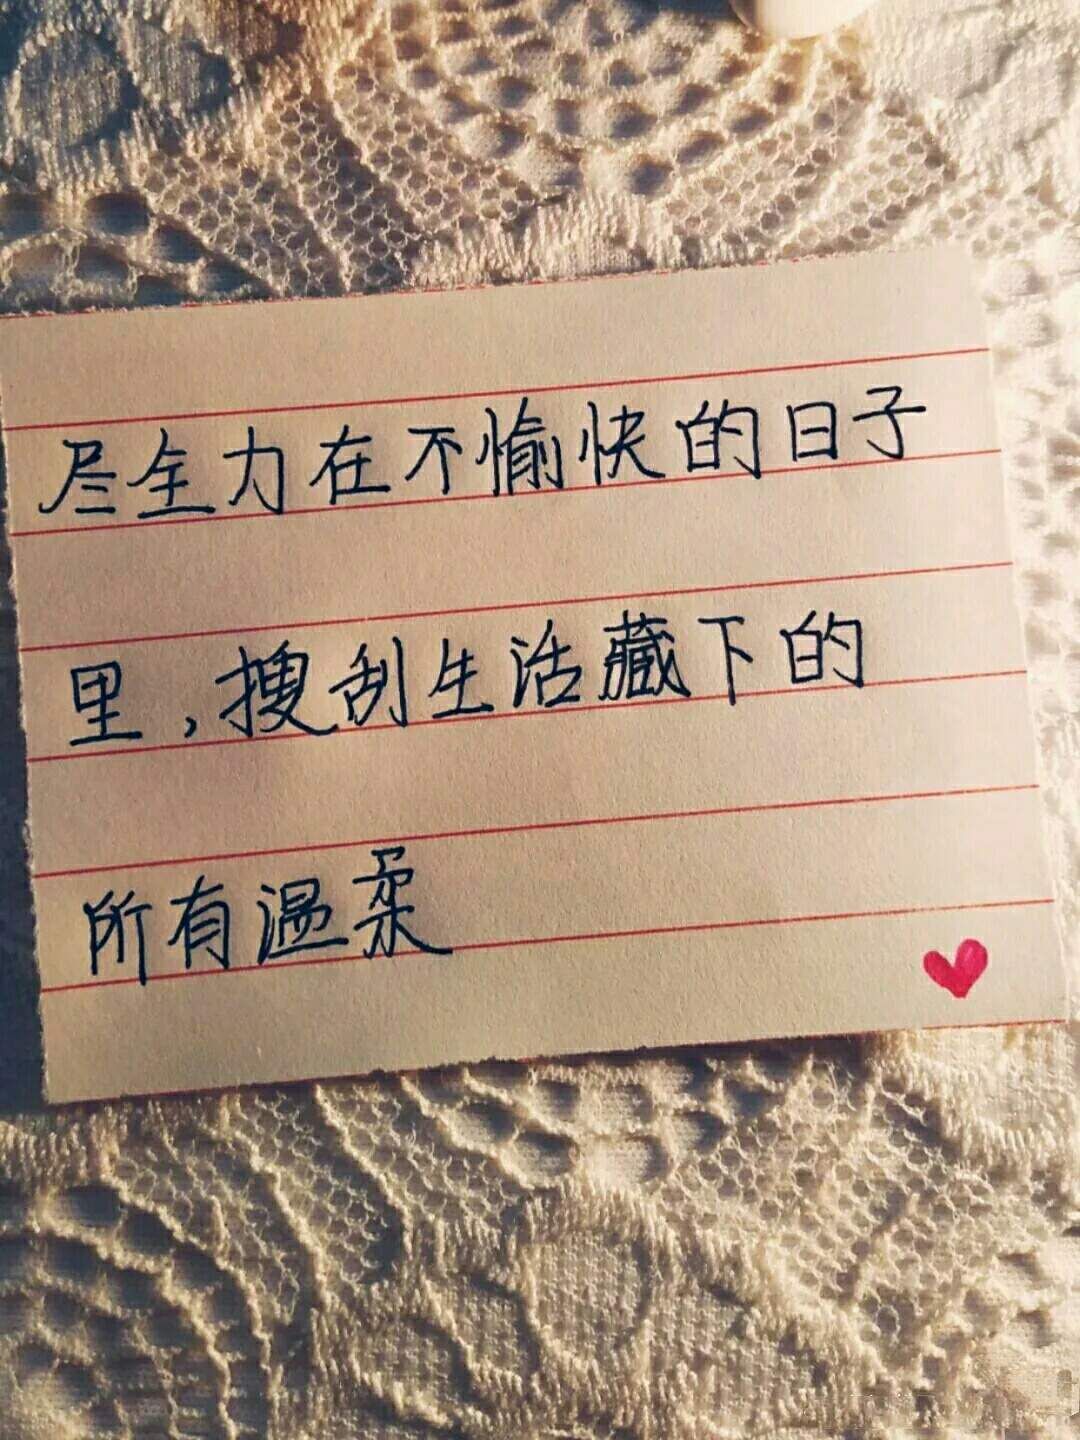 尽全力在不愉快的日子
里,搜刮生活藏下的
所有温柔